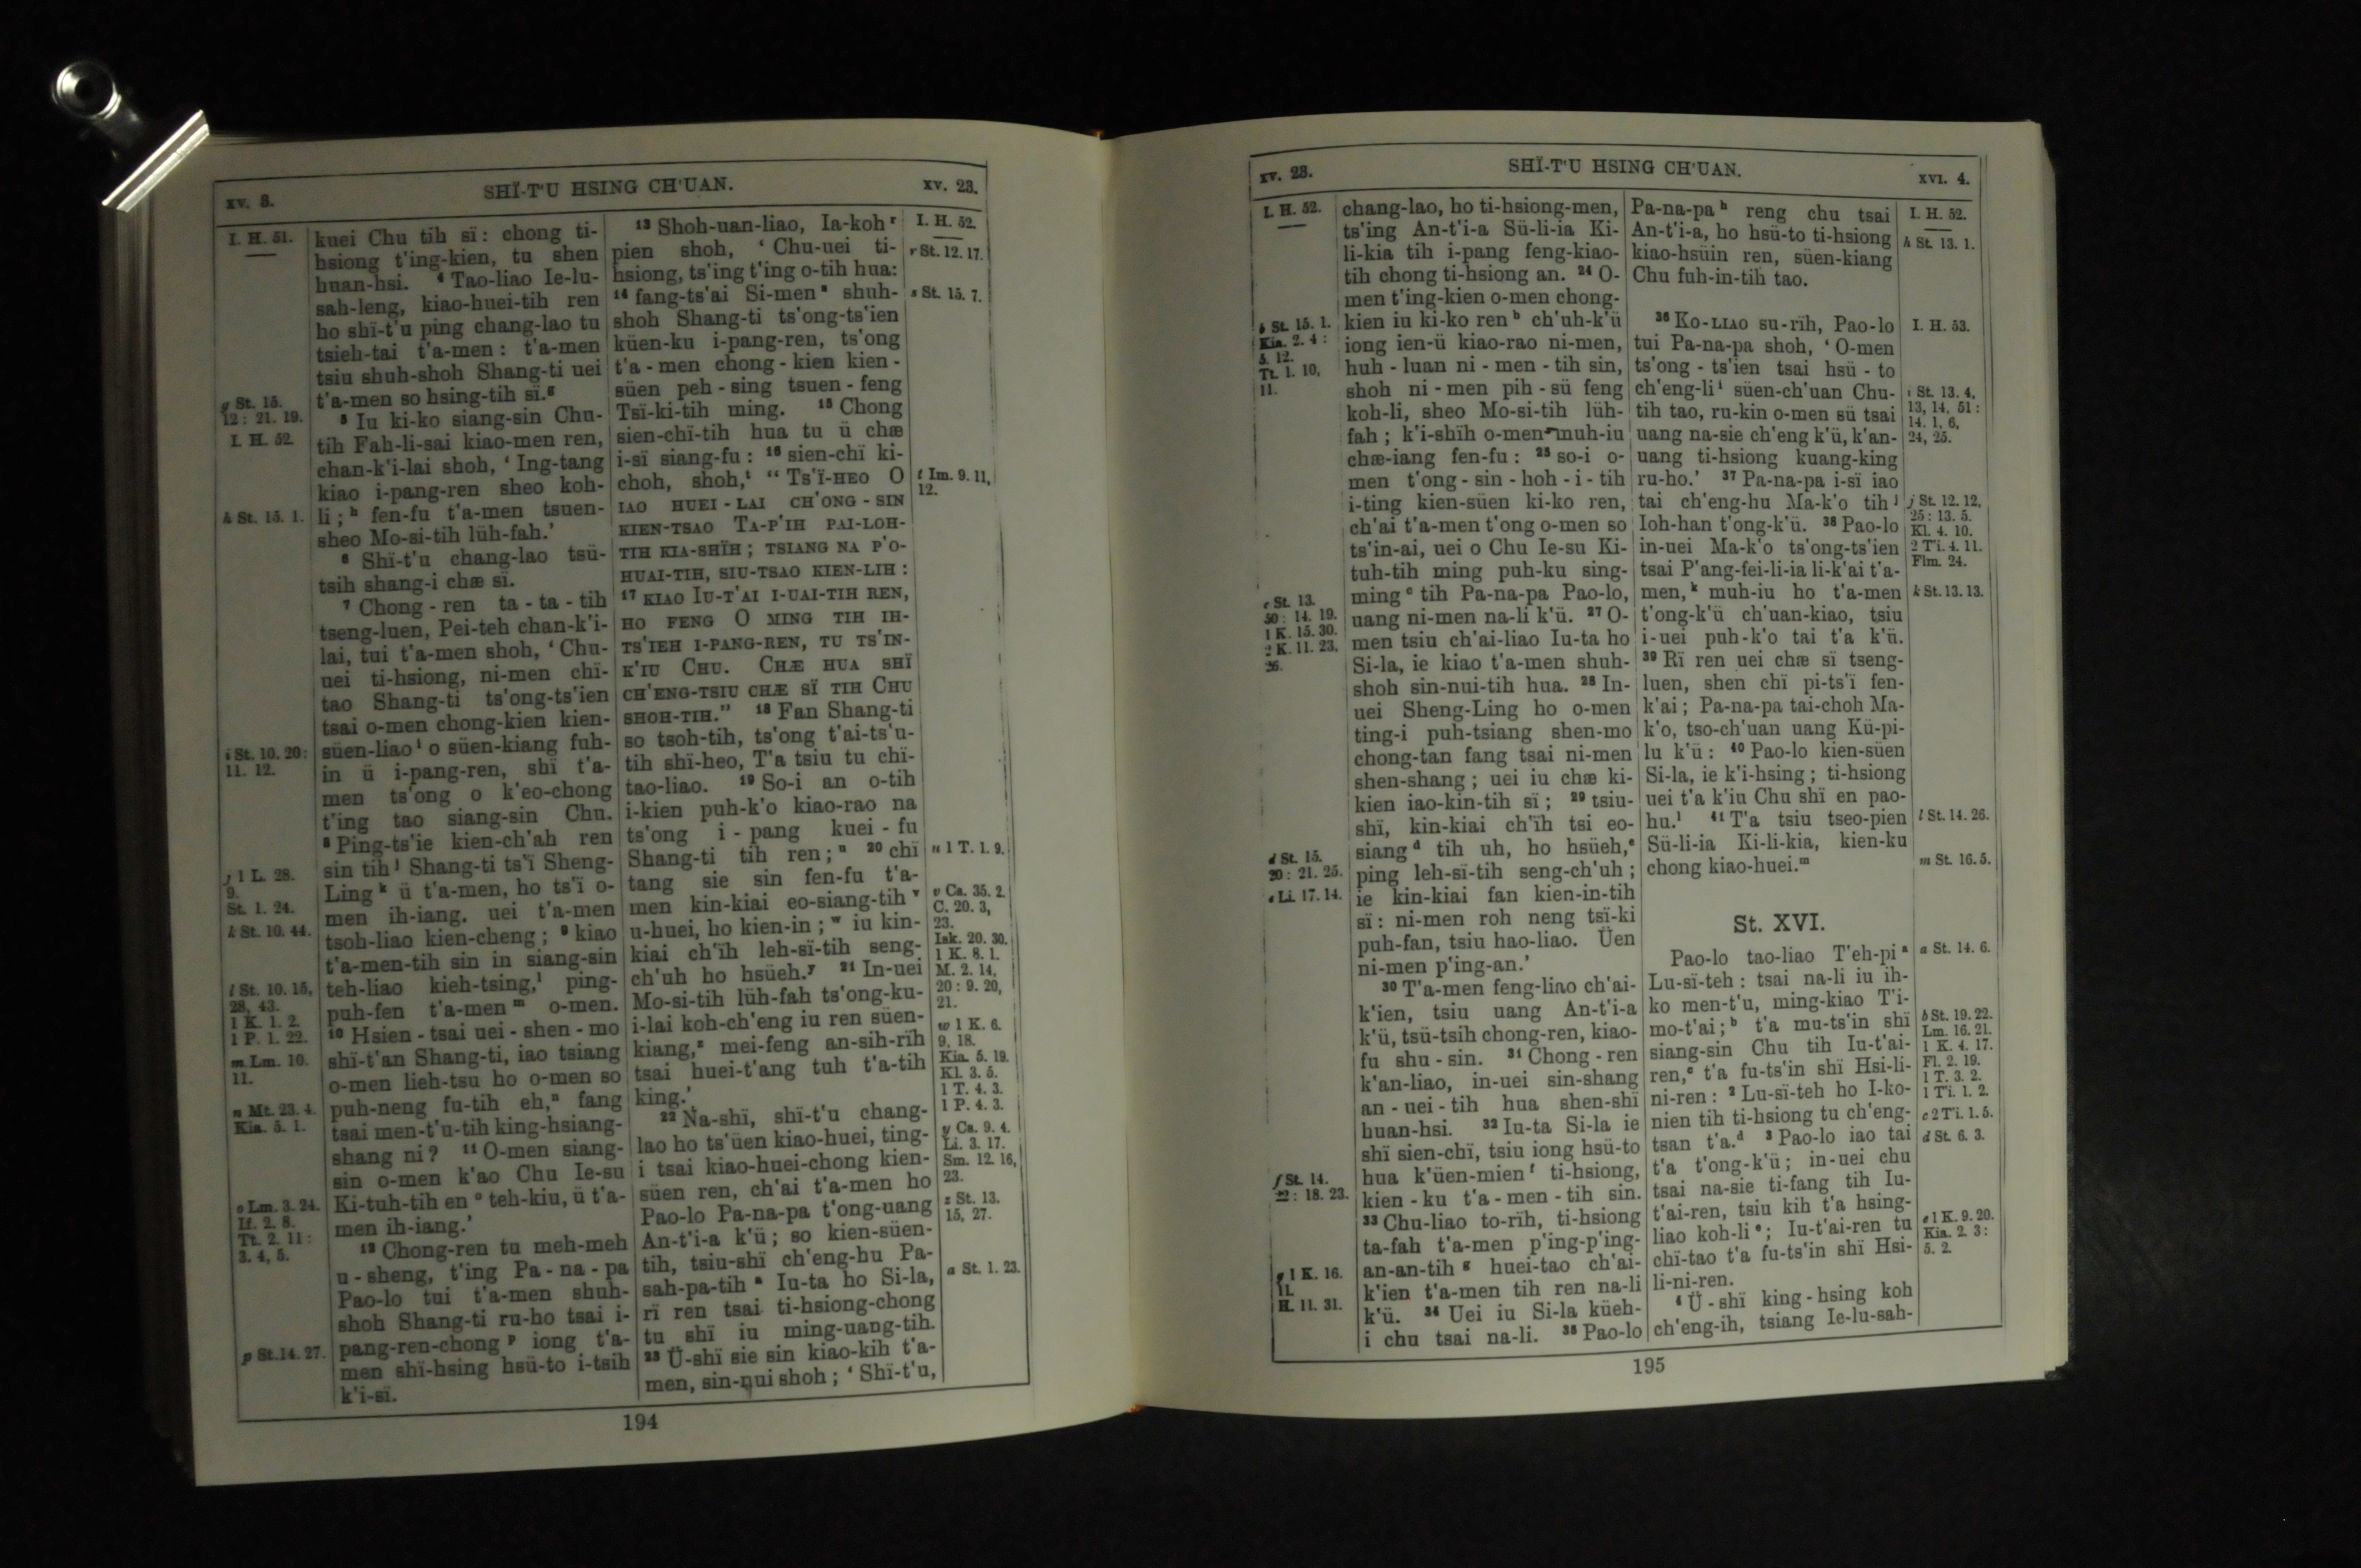 xv. 3.
SHÏ-T'U HSING CH'UAN.
xv. 23.
I. H. 51.
g St. 15.
12: 21. 19.
I. H. 52.
h St. 15. 1.
i St. 10. 20:
11. 12.
j 1 L. 28.
9.
St. 1. 24.
k St. 10. 44.
l St. 10. 15,
28, 43.
1 K. 1. 2.
1 P. 1. 22.
m Lm. 10.
11.
n Mt. 23. 4.
Kia. 5. 1.
o Lm. 3. 24.
If. 2. 8.
Tt. 2. 11:
3. 4, 5.
p St. 14. 27.
kuei Chu tih sï: chong ti-
hsiong t'ing-kien, tu shen
huan-hsi. 4 Tao-liao Ie-lu-
sah-leng, kiao-huei-tih ren
ho shï-t'u ping chang-lao tu
tsieh-tai t'a-men: t'a-men
tsiu shuh-shoh Shang-ti uei
t'a-men so hsing-tih sï.g
5 Iu ki-ko siang-sin Chu-
tih Fah-li-sai kiao-men ren,
chan-k'i-lai shoh, ‘Ing-tang
kiao i-pang-ren sheo koh-
li;h fen-fu t'a-men tsuen-
sheo Mo-si-tih lüh-fah.’
6 Shï-t'u chang-lao tsü-
tsih shang-i chæ sï.
7 Chong-ren ta-ta-tih
tseng-luen, Pei-teh chan-k'i-
lai, tui t'a-men shoh, ‘Chu-
uei ti-hsiong, ni-men chï-
tao Shang-ti ts'ong-ts'ien
tsai o-men chong-kien kien-
süen-liao i o süen-kiang fuh-
in ü i-pang-ren, shï t'a-
men ts'ong o k'eo-chong
t'ing tao siang-sin Chu.
8 Ping-ts'ie kien-ch'ah ren
sin tih j Shang-ti ts'ï Sheng-
Ling k ü t'a-men, ho ts'ï o-
men ih-iang. uei t'a-men
tsoh-liao kien-cheng; 9 kiao
t'a-men-tih sin in siang-sin
teh-liao kieh-tsing,l ping-
puh-fen t'a-men m o-men.
10 Hsien-tsai uei-shen-mo
shï-t'an Shang-ti, iao tsiang
o-men lieh-tsu ho o-men so
puh-neng fu-tih eh,n fang
tsai men-t'u-tih king-hsiang-
shang ni? 11 O-men siang-
sin o-men k'ao Chu Ie-su
Ki-tuh-tih en o teh-kiu, ü t'a-
men ih-iang.’
12 Chong-ren tu meh-meh
u-sheng, t'ing Pa-na-pa
Pao-lo tui t'a-men shuh-
shoh Shang-ti ru-ho tsai i-
pang-ren-chong p iong t'a-
men shï-hsing hsü-to i-tsih
k'i-sï.
13 Shoh-uan-liao, Ia-koh r
pien shoh, ‘Chu-uei ti-
hsiong, ts'ing t'ing o-tih hua:
14 fang-ts'ai Si-men s shuh-
shoh Shang-ti ts'ong-ts'ien
küen-ku i-pang-ren, ts'ong
t'a-men chong-kien kien-
süen peh-sing tsuen-feng
Tsï-ki-tih ming. 15 Chong
sien-chï-tih hua tu ü chæ
i-sï siang-fu: 16 sien-chï ki-
choh, shoh,t “Ts'ï-HEO O
IAO HUEI-LAI CH'ONG-SIN
KIEN-TSAO TA-P'IH PAI-LOH-
TIH KIA-SHÏH; TSIANG NA P'O-
HUAI-TIH, SIU-TSAO KIEN-LIH:
17 KIAO IU-T'AI I-UAI-TIH REN,
HO FENG O MING TIH IH-
TS'IEH I-PANG-REN, TU TS'IN-
K'IU CHU. CHÆ HUA SHÏ
CH'ENG-TSIU CHÆ SÏ TIH CHU
SHOH-TIH.” 18 Fan Shang-ti
so tsoh-tih, ts'ong t'ai-ts'u-
tih shï-heo, T'a tsiu tu chï-
tao-liao. 19 So-i an o-tih
i-kien puh-k'o kiao-rao na
ts'ong i-pang kuei-fu
Shang-ti tih ren;u 20 chï
tang sie sin fen-fu t'a-
men kin-kiai eo-siang-tih v
u-huei, ho kien-in;w iu kin-
kiai ch'ïh leh-sï-tih seng-
ch'uh ho hsüeh.y 21 In-uei
Mo-si-tih lüh-fah ts'ong-ku-
i-lai koh-ch'eng iu ren süen-
kiang,z mei-feng an-sih-rïh
tsai huei-t'ang tuh t'a-tih
king.’
22 Na-shï, shï-t'u chang-
lao ho ts'üen kiao-huei, ting-
i tsai kiao-huei-chong kien-
süen ren, ch'ai t'a-men ho
Pao-lo Pa-na-pa t'ong-uang
An-t'i-a k'ü; so kien-süen-
tih, tsiu-shï ch'eng-hu Pa-
sah-pa-tih a Iu-ta ho Si-la,
rï ren tsai ti-hsiong-chong
tu shï iu ming-uang-tih.
23 Ü-shï sie sin kiao-kih t'a-
men, sin-nui shoh; ‘Shï-t'u,
I. H. 52.
r St. 12. 17.
s St. 15. 7.
t Im. 9. 11,
12.
u 1 T. 1. 9.
v Ca. 35. 2.
C. 20. 3,
23.
Isk. 20. 30.
1 K. 8. 1.
M. 2. 14,
20: 9. 20,
21.
w 1 K. 6.
9, 18.
Kia. 5. 19.
Kl. 3. 5.
1 T. 4. 3.
1 P. 4. 3.
y Ca. 9. 4.
Li. 3. 17.
Sm. 12. 16,
23.
z St. 13.
15, 27.
a St. 1. 23.
194
xv. 23.
SHÏ-T'U HSING CH'UAN.
xvi. 4.
I. H. 52.
b St. 15. 1.
Kia. 2. 4:
5. 12.
Tt. 1. 10,
11.
c St. 13.
50: 14. 19.
1 K. 15. 30.
2 K. 11. 23,
26.
d St. 15.
20: 21. 25.
e Li. 17. 14.
f St. 14.
22: 18. 23.
g 1 K. 16.
11.
H. 11. 31.
chang-lao, ho ti-hsiong-men,
ts'ing An-t'i-a Sü-li-ia Ki-
li-kia tih i-pang feng-kiao-
tih chong ti-hsiong an. 24 O-
men t'ing-kien o-men chong-
kien iu ki-ko ren b ch'uh-k'ü
iong ien-ü kiao-rao ni-men,
huh-luan ni-men-tih sin,
shoh ni-men pih-sü feng
koh-li, sheo Mo-si-tih lüh-
fah; k'i-shïh o-men muh-iu
chæ-iang fen-fu: 25 so-i o-
men t'ong-sin-hoh-i-tih
i-ting kien-süen ki-ko ren,
ch'ai t'a-men t'ong o-men so
ts'in-ai, uei o Chu Ie-su Ki-
tuh-tih ming puh-ku sing-
ming c tih Pa-na-pa Pao-lo,
uang ni-men na-li k'ü. 27 O-
men tsiu ch'ai-liao Iu-ta ho
Si-la, ie kiao t'a-men shuh-
shoh sin-nui-tih hua. 28 In-
uei Sheng-Ling ho o-men
ting-i puh-tsiang shen-mo
chong-tan fang tsai ni-men
shen-shang; uei iu chæ ki-
kien iao-kin-tih sï; 29 tsiu-
shï, kin-kiai ch'ïh tsi eo-
siang d tih uh, ho hsüeh,e
ping leh-sï-tih seng-ch'uh;
ie kin-kiai fan kien-in-tih
sï: ni-men roh neng tsï-ki
puh-fan, tsiu hao-liao. Üen
ni-men p'ing-an.’
30 T'a-men feng-liao ch'ai-
k'ien, tsiu uang An-t'i-a
k'ü, tsü-tsih chong-ren, kiao-
fu shu-sin. 31 Chong-ren
k'an-liao, in-uei sin-shang
an-uei-tih hua shen-shï
huan-hsi. 32 Iu-ta Si-la ie
shï sien-chï, tsiu iong hsü-to
hua k'üen-mien f ti-hsiong,
kien-ku t'a-men-tih sin.
33 Chu-liao to-rïh, ti-hsiong
ta-fah t'a-men p'ing-p'ing-
an-an-tih g huei-tao ch'ai-
k'ien t'a-men tih ren na-li
k'ü. 34 Uei iu Si-la küeh-
i chu tsai na-li. 35 Pao-lo
Pa-na-pa h reng chu tsai
An-t'i-a, ho hsü-to ti-hsiong
kiao-hsüin ren, süen-kiang
Chu fuh-in-tih tao.
36 Ko-LIAO su-rïh, Pao-lo
tui Pa-na-pa shoh, ‘O-men
ts'ong-ts'ien tsai hsü-to
ch'eng-li i süen-ch'uan Chu-
tih tao, ru-kin o-men sü tsai
uang na-sie ch'eng k'ü, k'an-
uang ti-hsiong kuang-king
ru-ho.’ 37 Pa-na-pa i-sï iao
tai ch'eng-hu Ma-k'o tih j
Ioh-han t'ong-k'ü. 38 Pao-lo
in-uei Ma-k'o ts'ong-ts'ien
tsai P'ang-fei-li-ia li-k'ai t'a-
men,k muh-iu ho t'a-men
t'ong-k'ü ch'uan-kiao, tsiu
i-uei puh-k'o tai t'a k'ü.
39 Rï ren uei chæ sï tseng-
luen, shen chï pi-ts'ï fen-
k'ai; Pa-na-pa tai-choh Ma-
k'o, tso-ch'uan uang Kü-pi-
lu k'ü: 40 Pao-lo kien-süen
Si-la, ie k'i-hsing; ti-hsiong
uei t'a k'iu Chu shï en pao-
hu.l 41 T'a tsiu tseo-pien
Sü-li-ia Ki-li-kia, kien-ku
chong kiao-huei.m
St. XVI.
Pao-lo tao-liao T'eh-pi a
Lu-sï-teh: tsai na-li iu ih-
ko men-t'u, ming-kiao T'i-
mo-t'ai;b t'a mu-ts'in shï
siang-sin Chu tih Iu-t'ai-
ren,c t'a fu-ts'in shï Hsi-li-
ni-ren: 2 Lu-sï-teh ho I-ko-
nien tih ti-hsiong tu ch'eng-
tsan t'a.d 3 Pao-lo iao tai
t'a t'ong-k'ü; in-uei chu
tsai na-sie ti-fang tih Iu-
t'ai-ren, tsiu kih t'a hsing-
liao koh-li e; Iu-t'ai-ren tu
chï-tao t'a fu-ts'in shï Hsi-
li-ni-ren.
4 Ü-shï king-hsing koh
ch'eng-ih, tsiang Ie-lu-sah-
I. H. 52.
h St. 13. 1.
I. H. 53.
i St. 13. 4,
13, 14, 51:
14. 1, 6,
24, 25.
j St. 12. 12,
25: 13. 5.
Kl. 4. 10.
2 T'i. 4. 11.
Flm. 24.
k St. 13. 13.
l St. 14. 26.
m St. 16. 5.
a St. 14. 6.
b St. 19. 22.
Lm. 16. 21.
1 K. 4. 17.
Fl. 2. 19.
1 T. 3. 2.
1 Ti. 1. 2.
c 2 T'i. 1. 5.
d St. 6. 3.
e 1 K. 9. 20.
Kia. 2. 3:
5. 2.
195